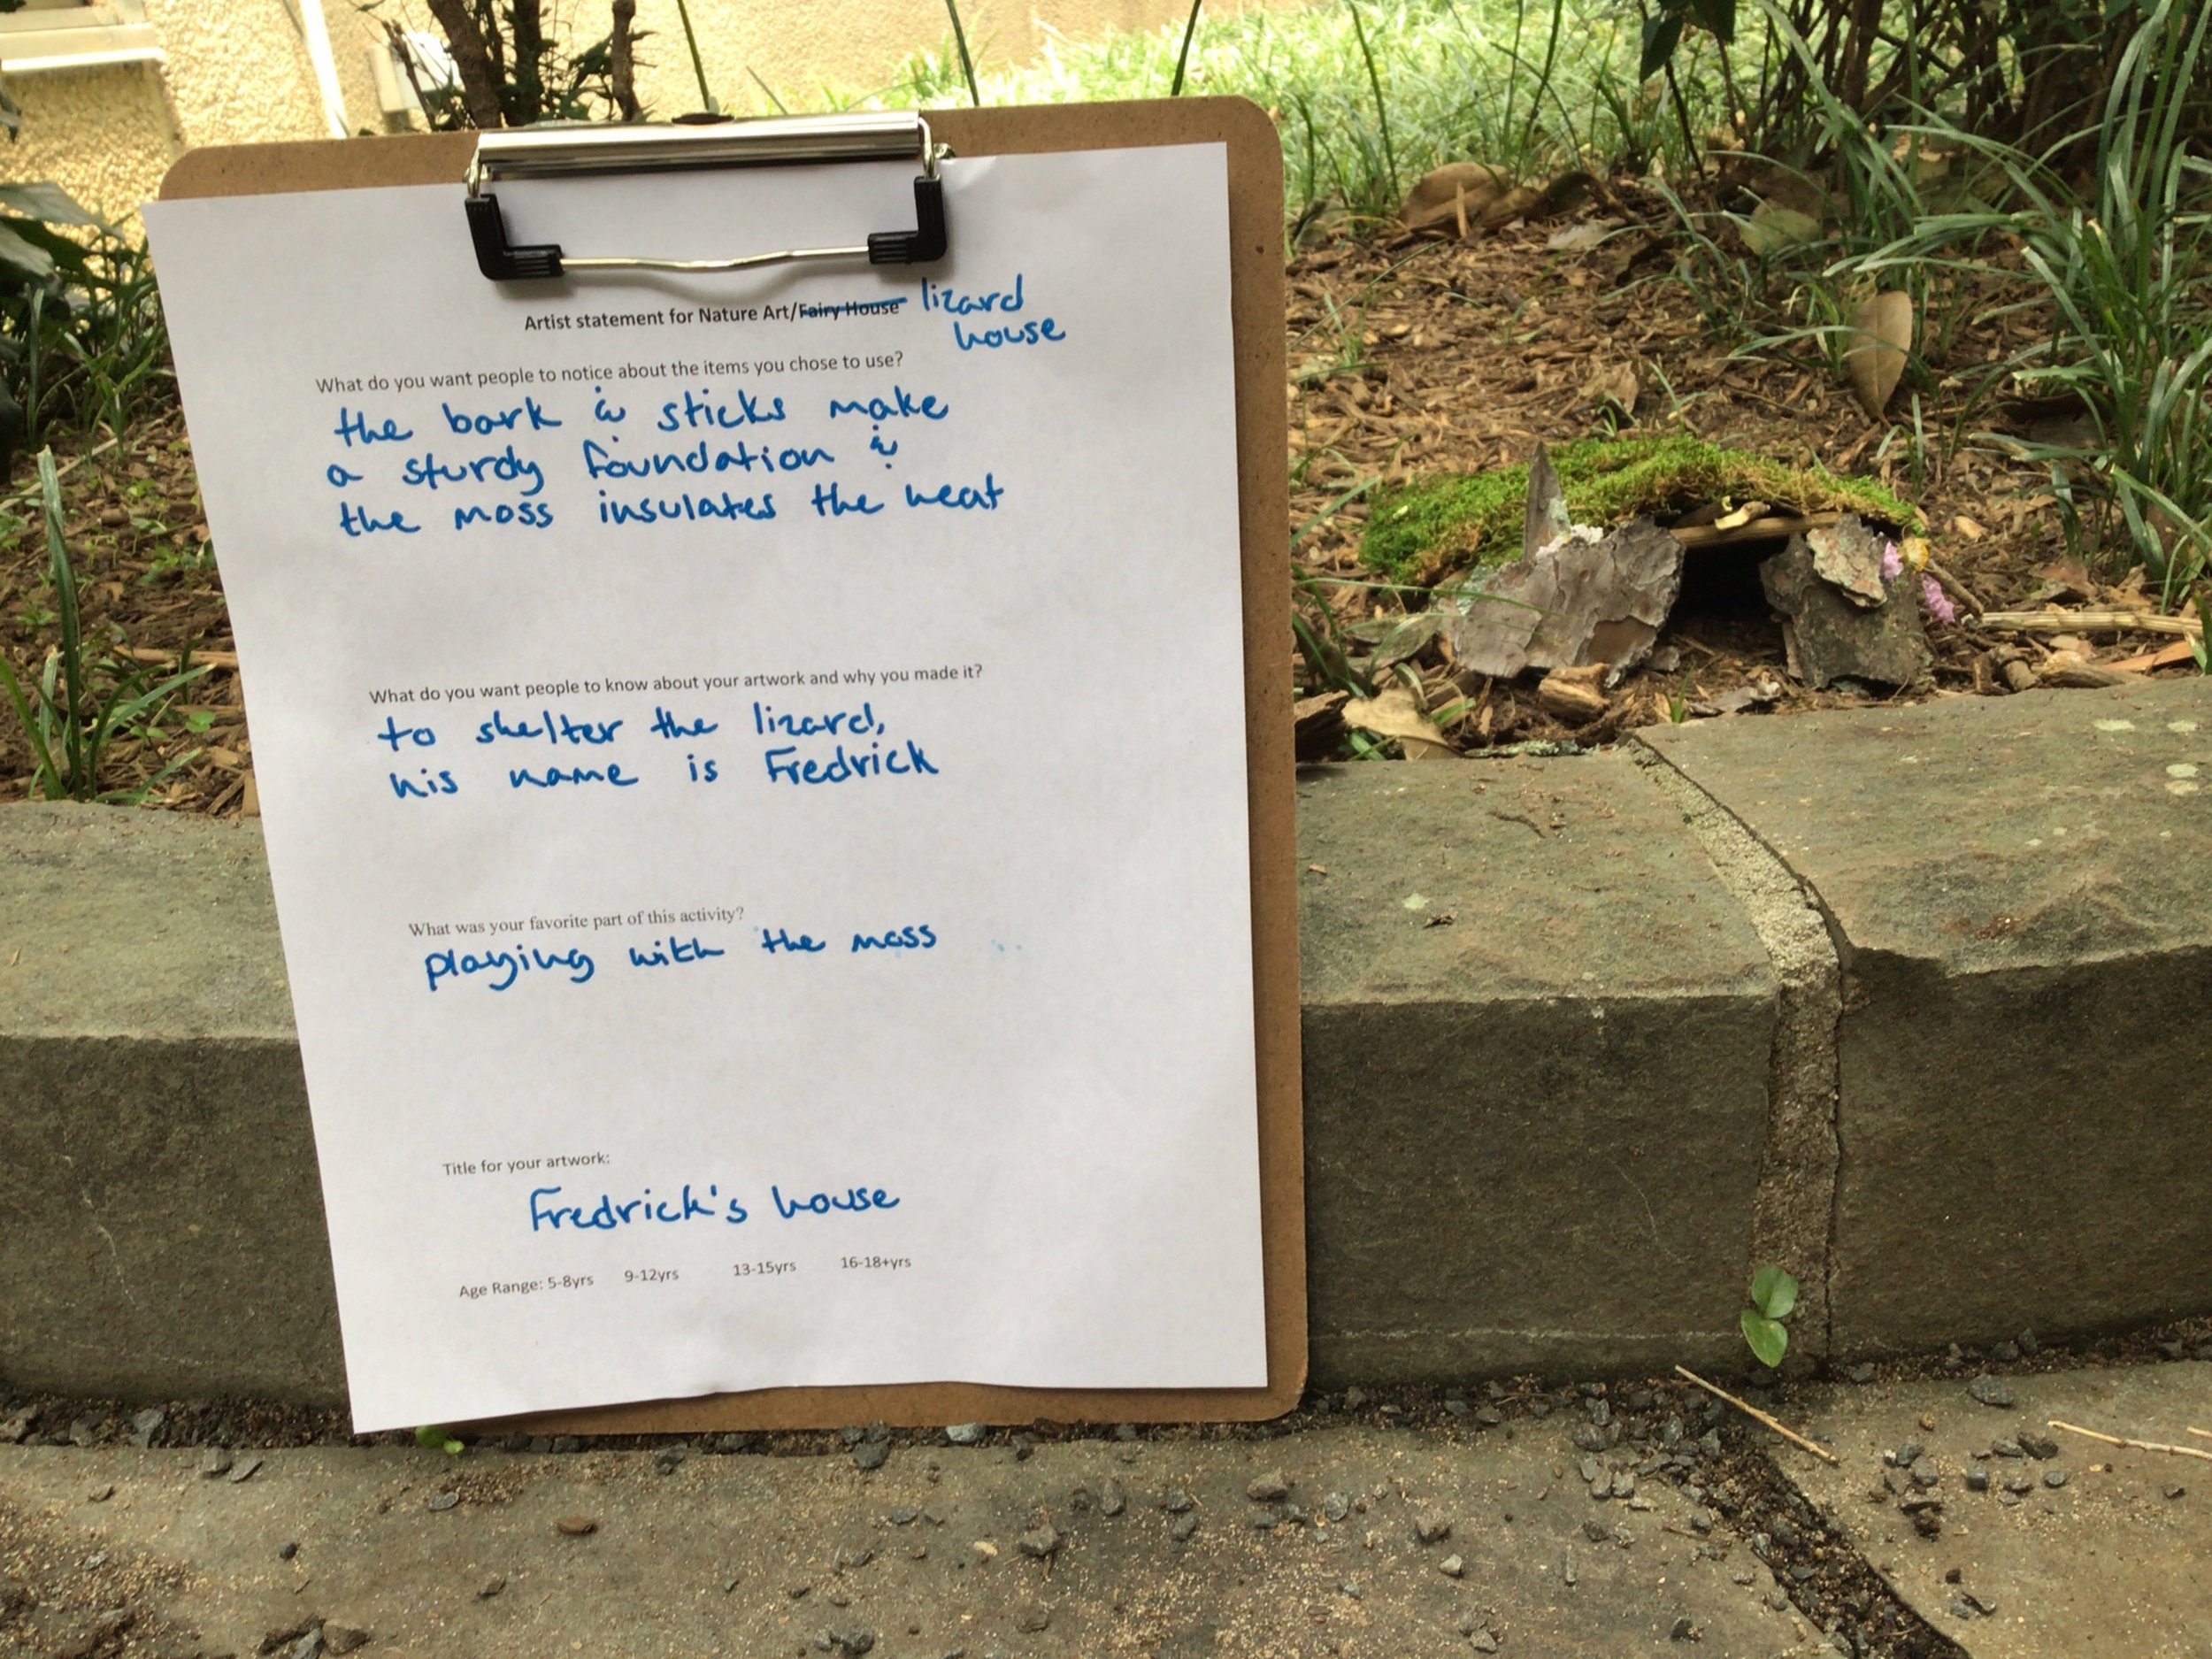 Artist statement for Nature Art/Fairy House lizard
house
What do you want people to notice about the items you chose to use?
the bark & sticks make
a sturdy foundation &
the moss insulates the heat
What do you want people to know about your artwork and why you made it?
to shelter the lizard,
his name is Fredrick
What was your favorite part of this activity?
playing with the moss
Title for your artwork:
Fredrick's house
Age Range: 5-8yrs 9-12yrs 13-15yrs 16-18+yrs